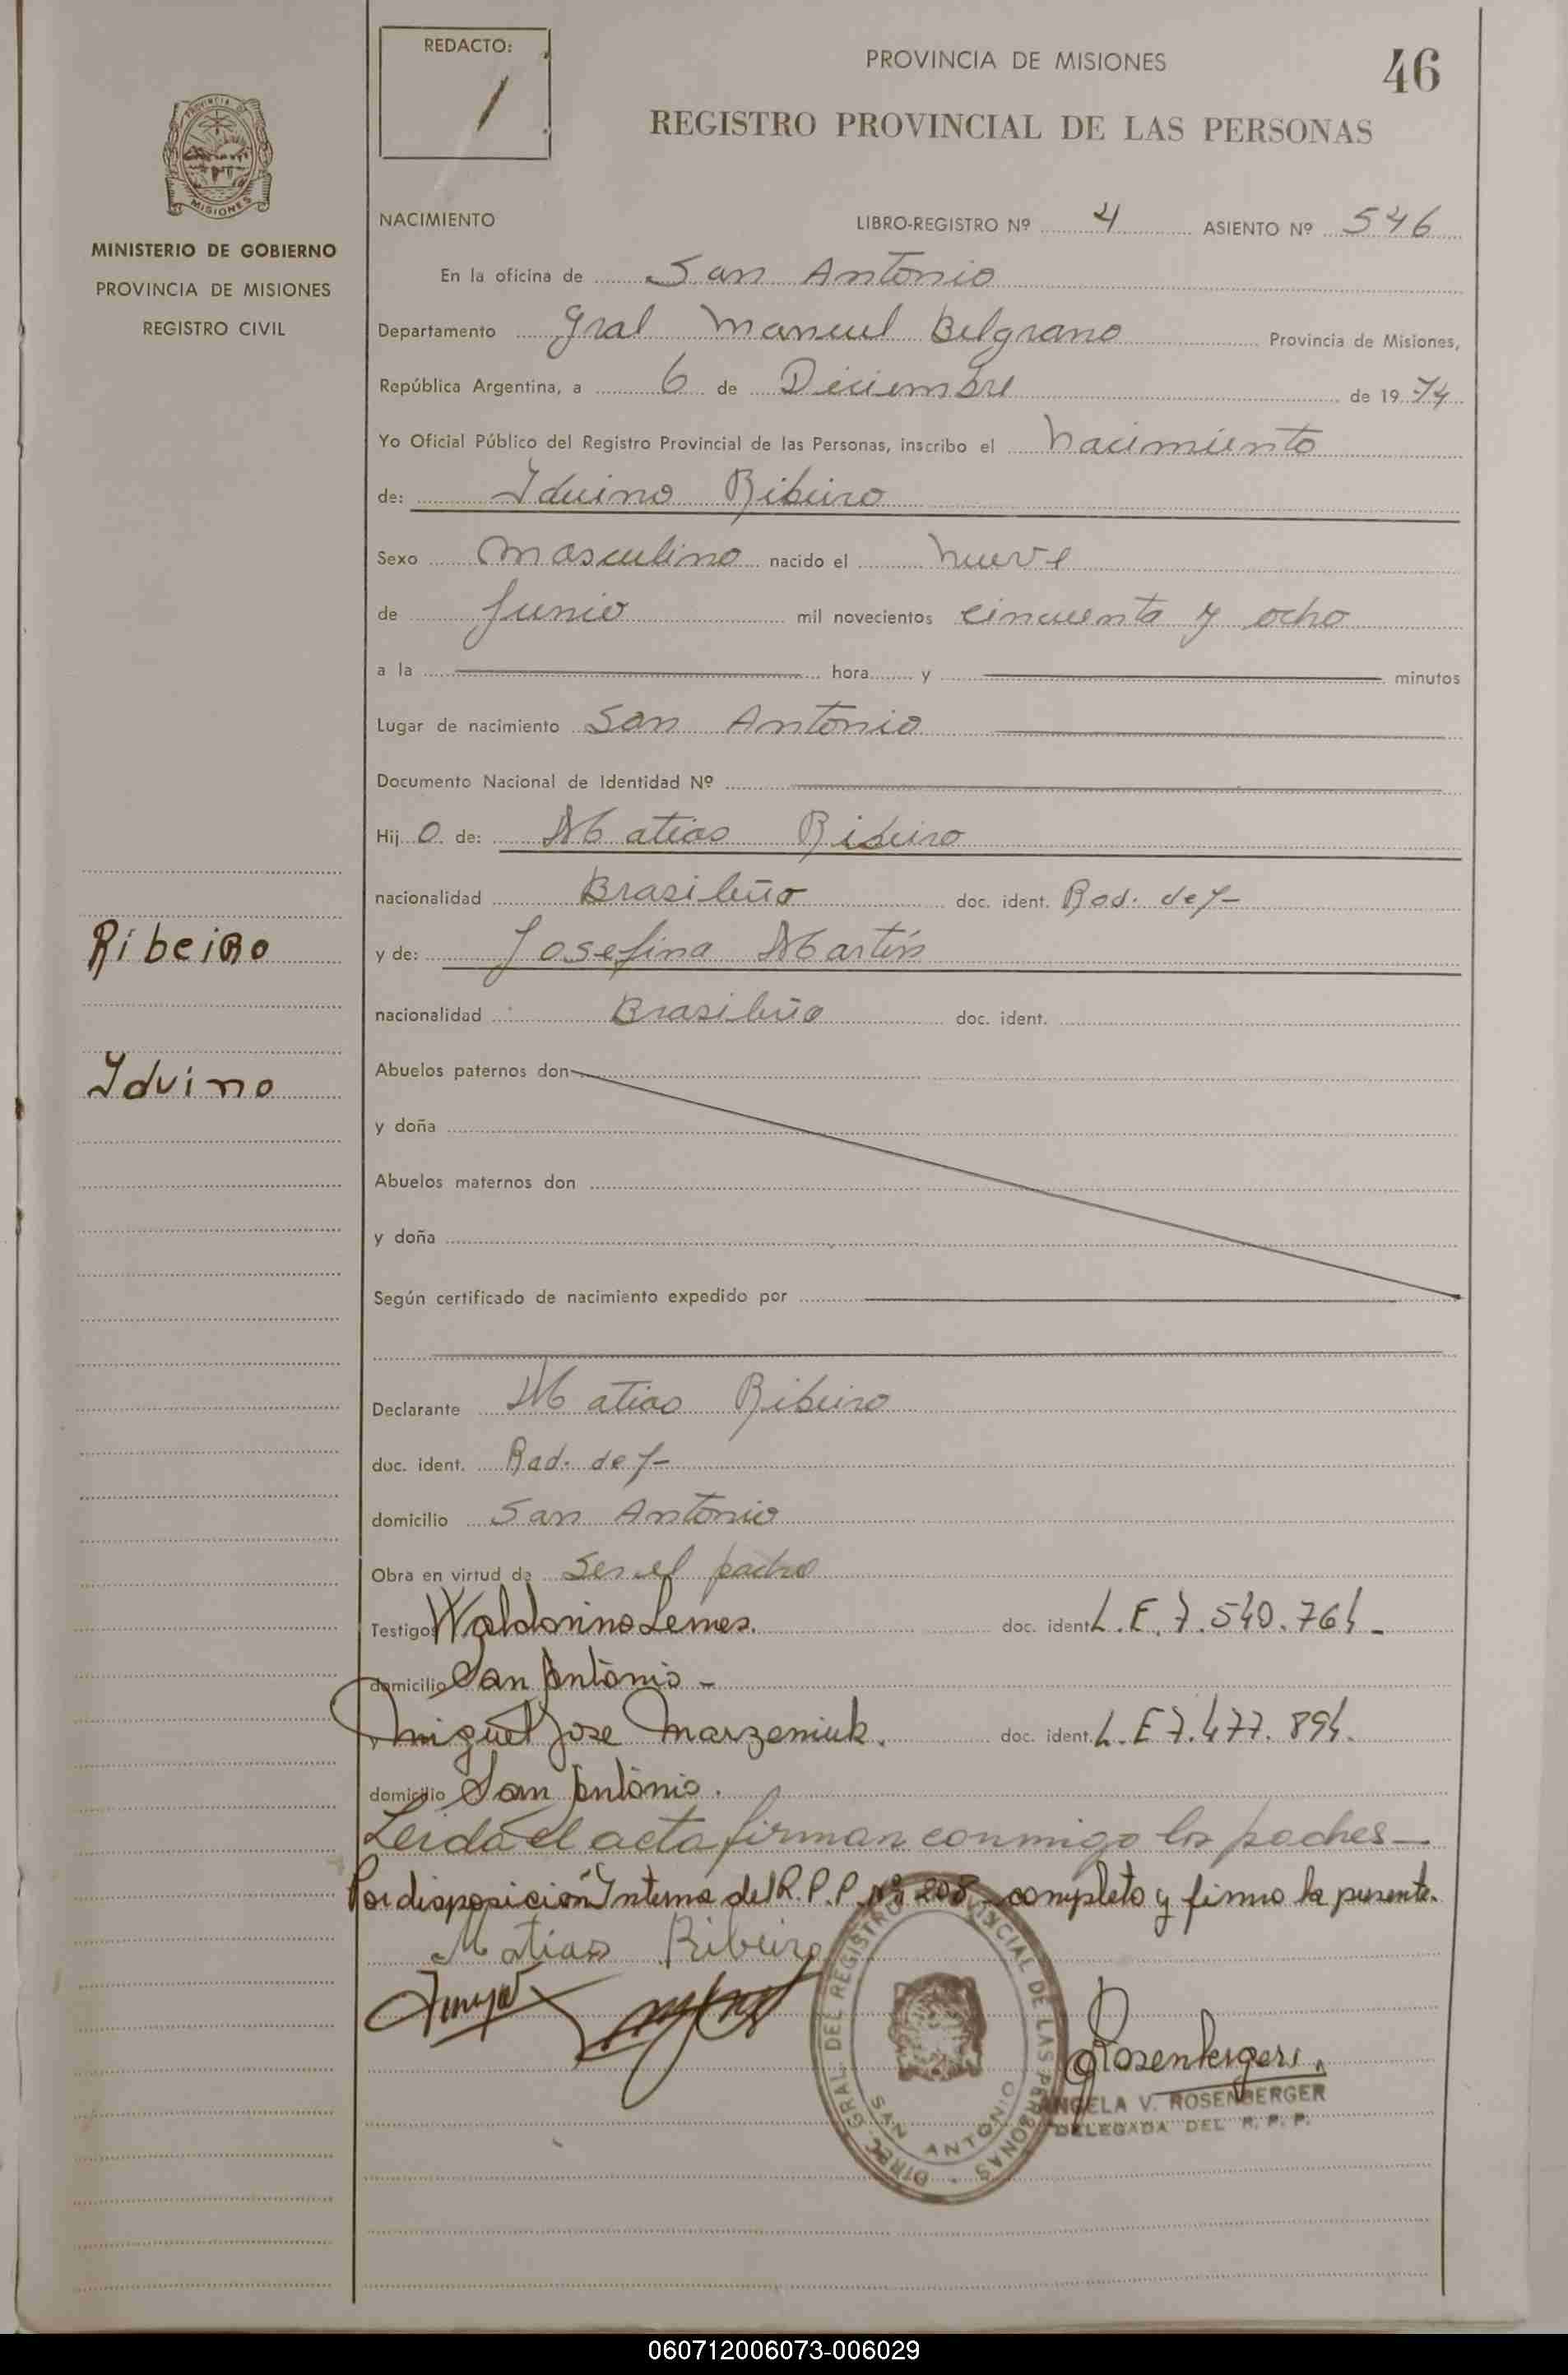 REDACTO:
1
PROVINCIA DE MISIONES
46
REGISTRO PROVINCIAL DE LAS PERSONAS
PROVINCIA DE
MISIONES
MINISTERIO DE GOBIERNO
PROVINCIA DE MISIONES
REGISTRO CIVIL
NACIMIENTO LIBRO-REGISTRO Nº 4 ASIENTO Nº 546
En la oficina de San Antonio
Departamento Gral Manuel Belgrano Provincia de Misiones,
República Argentina, a 6 de Diciembre de 19 74
Yo Oficial Público del Registro Provincial de las Personas, inscribo el nacimiento
de: Iduino Ribeiro
Sexo masculino nacido el nueve
de Junio mil novecientos cincuenta y ocho
a la hora y minutos
Lugar de nacimiento San Antonio
Documento Nacional de Identidad Nº
Hij o de: Matias Ribeiro
nacionalidad Brasileño doc. ident. Rad. def-
Ribeiro
y de: Josefina Martins
nacionalidad Brasileña doc. ident.
Iduino
Abuelos paternos don
y doña
Abuelos maternos don
y doña
Según certificado de nacimiento expedido por
Declarante Matias Ribeiro
doc. ident. Rad. def-
domicilio San Antonio
Obra en virtud de Ser el padre
Testigos Waldorino Lemes. doc. ident. L.E. 7.540.764-
domicilio San Antonio-
Miguel Jose Marzeniuk. doc. ident. L.E 7.477.894.
domicilio San Antonio.
Leida el acta firman conmigo los padres-
Por disposición Interna del R.P.P. Nº 208- completo y firmo la presente.
Matias Ribeiro
DIREC. GRAL. DEL REGISTRO PROVINCIAL DE LAS PERSONAS
SAN ANTONIO
Rosenberger
ANGELA V. ROSENBERGER
DELEGADA DEL R. P. P.
060712006073-006029